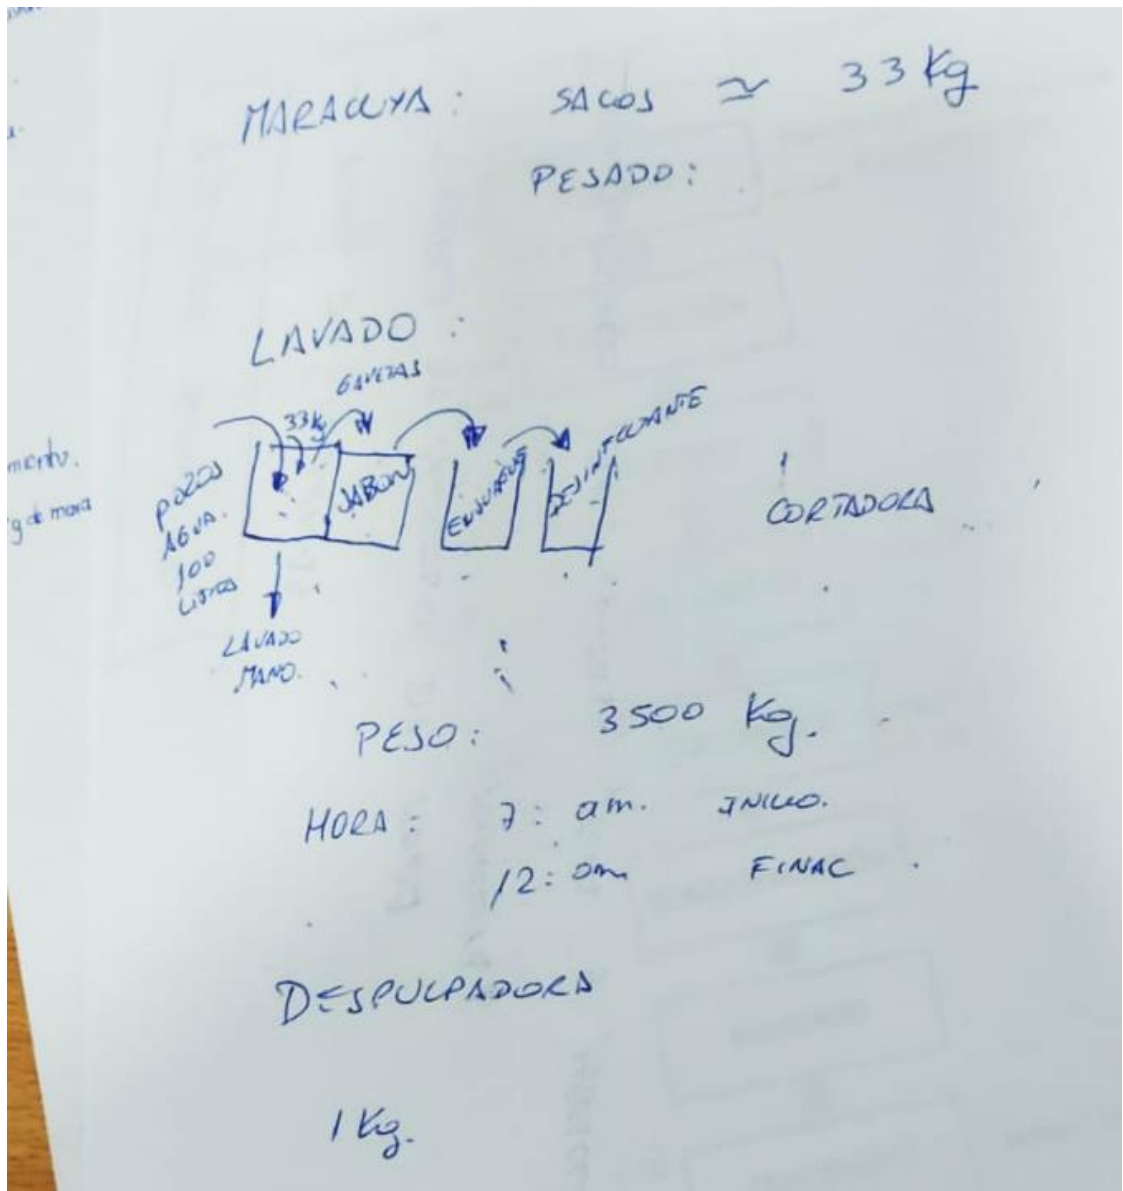 MARACUYA : SACOS ≃ 33 Kg
PESADO :
LAVADO :
GAVETAS
33 Kg
POZOS
AGUA.
100
LITROS
JABON
ENJUAGUE
DESINFECTANTE
CORTADORA
LAVADO
MANO.
mento.
g de mora
PESO : 3500 Kg.
HORA : 7 : am. INICIO.
12 : am FINAL
DESPULPADORA
1 Kg.